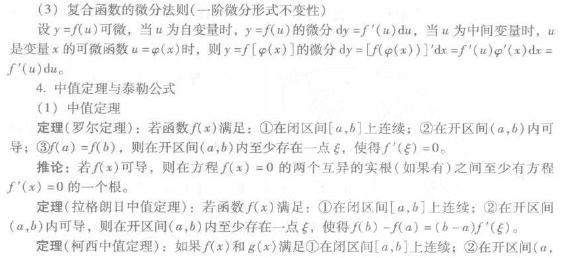 (3) 复合函数的微分法则(一阶微分形式不变性)
设 y=f(u)可微，当 u 为自变量时，y=f(u)的微分 dy=f'(u)du，当 u 为中间变量时，u
是变量 x 的可微函数 u=φ(x)时，则 y=f[φ(x)]的微分 dy=[f(φ(x))]'dx=f'(u)φ'(x)dx=
f'(u)du。
4. 中值定理与泰勒公式
(1) 中值定理
定理(罗尔定理)：若函数f(x)满足：①在闭区间[a,b]上连续；②在开区间(a,b)内可
导；③f(a)=f(b)，则在开区间(a,b)内至少存在一点ξ，使得f'(ξ)=0。
推论：若f(x)可导，则在方程f(x)=0的两个互异的实根(如果有)之间至少有方程
f'(x)=0的一个根。
定理(拉格朗日中值定理)：若函数f(x)满足：①在闭区间[a,b]上连续；②在开区间
(a,b)内可导，则在开区间(a,b)内至少存在一点ξ，使得f(b)-f(a)=(b-a)f'(ξ)。
定理(柯西中值定理)：如果f(x)和g(x)满足①在闭区间[a,b]上连续；②在开区间(a,